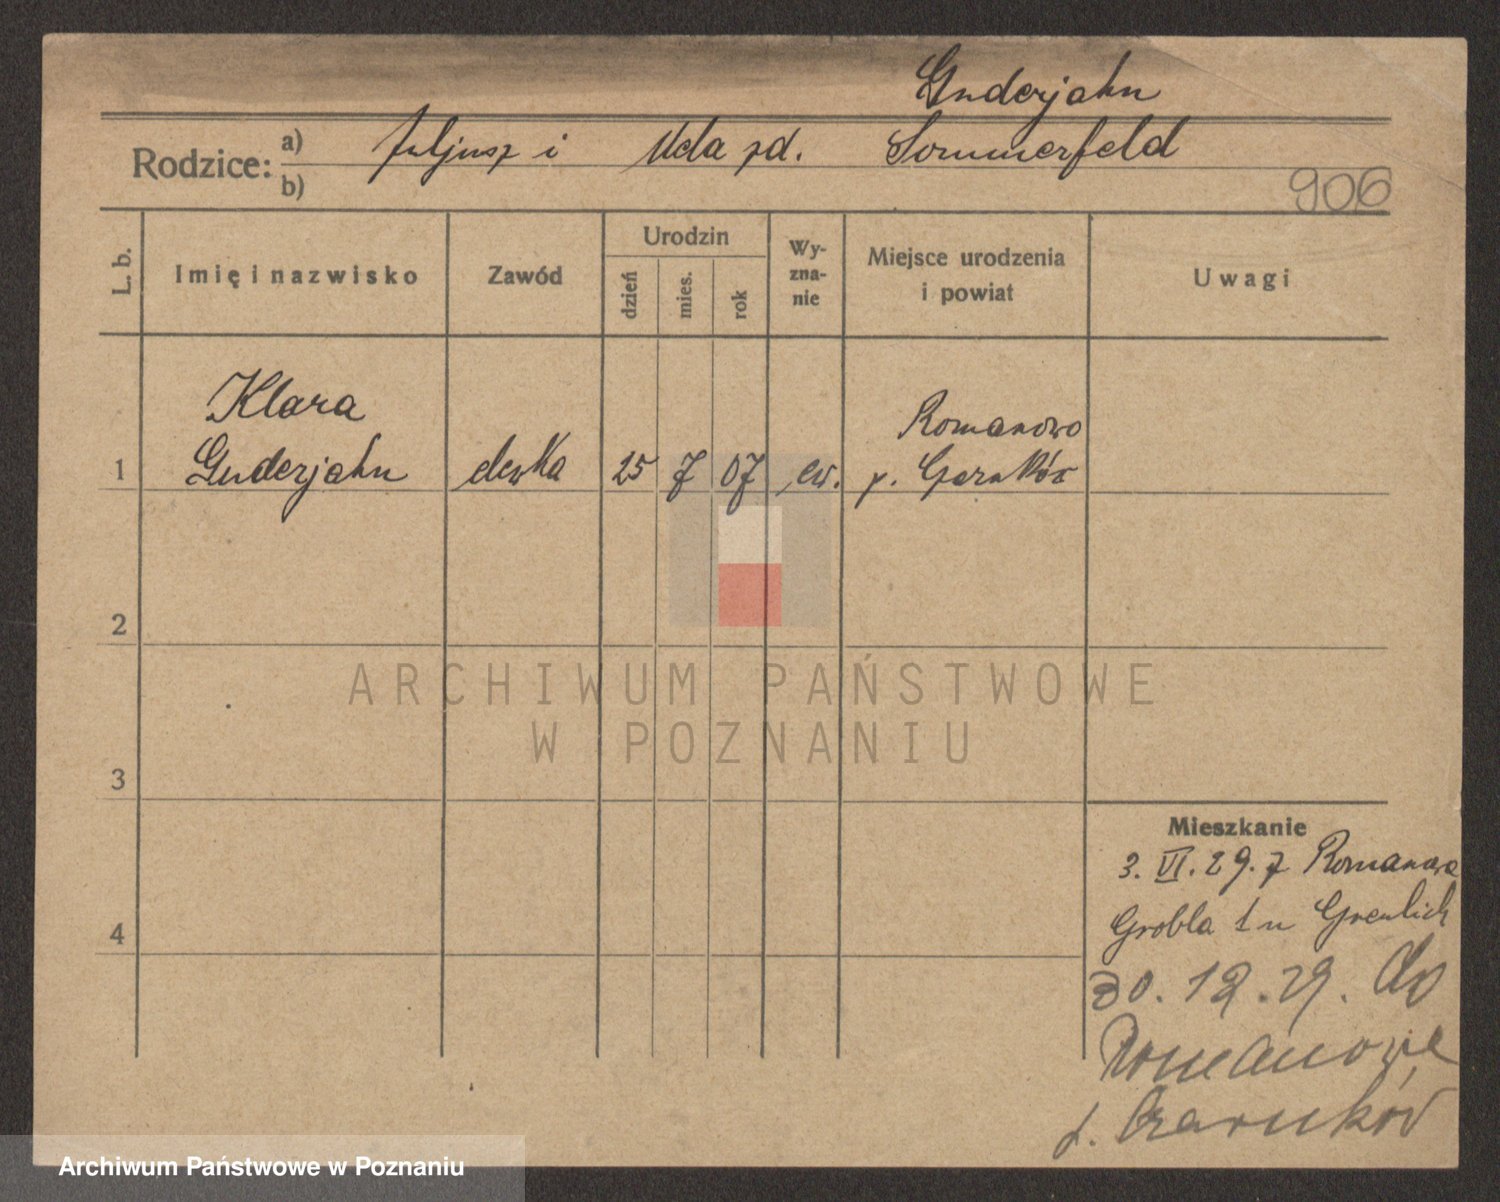 Guderjahn
Rodzice: a) Juljusz i Uda zd. Sommerfeld
b)
906
L. b.
Imię i nazwisko
Zawód
Urodzin
dzień
mies.
rok
Wy-
zna-
nie
Miejsce urodzenia
i powiat
Uwagi
Klara
Guderjahn
1
25 7 07 ew.
Romanowo
p. Czarnków
2
3
4
Mieszkanie
3. VI. 29. z Romanowa
Grobla 1 u
30. 12. 29. do
Romanowa
p. Czarnków
ARCHIWUM PAŃSTWOWE
W POZNANIU
Archiwum Państwowe w Poznaniu